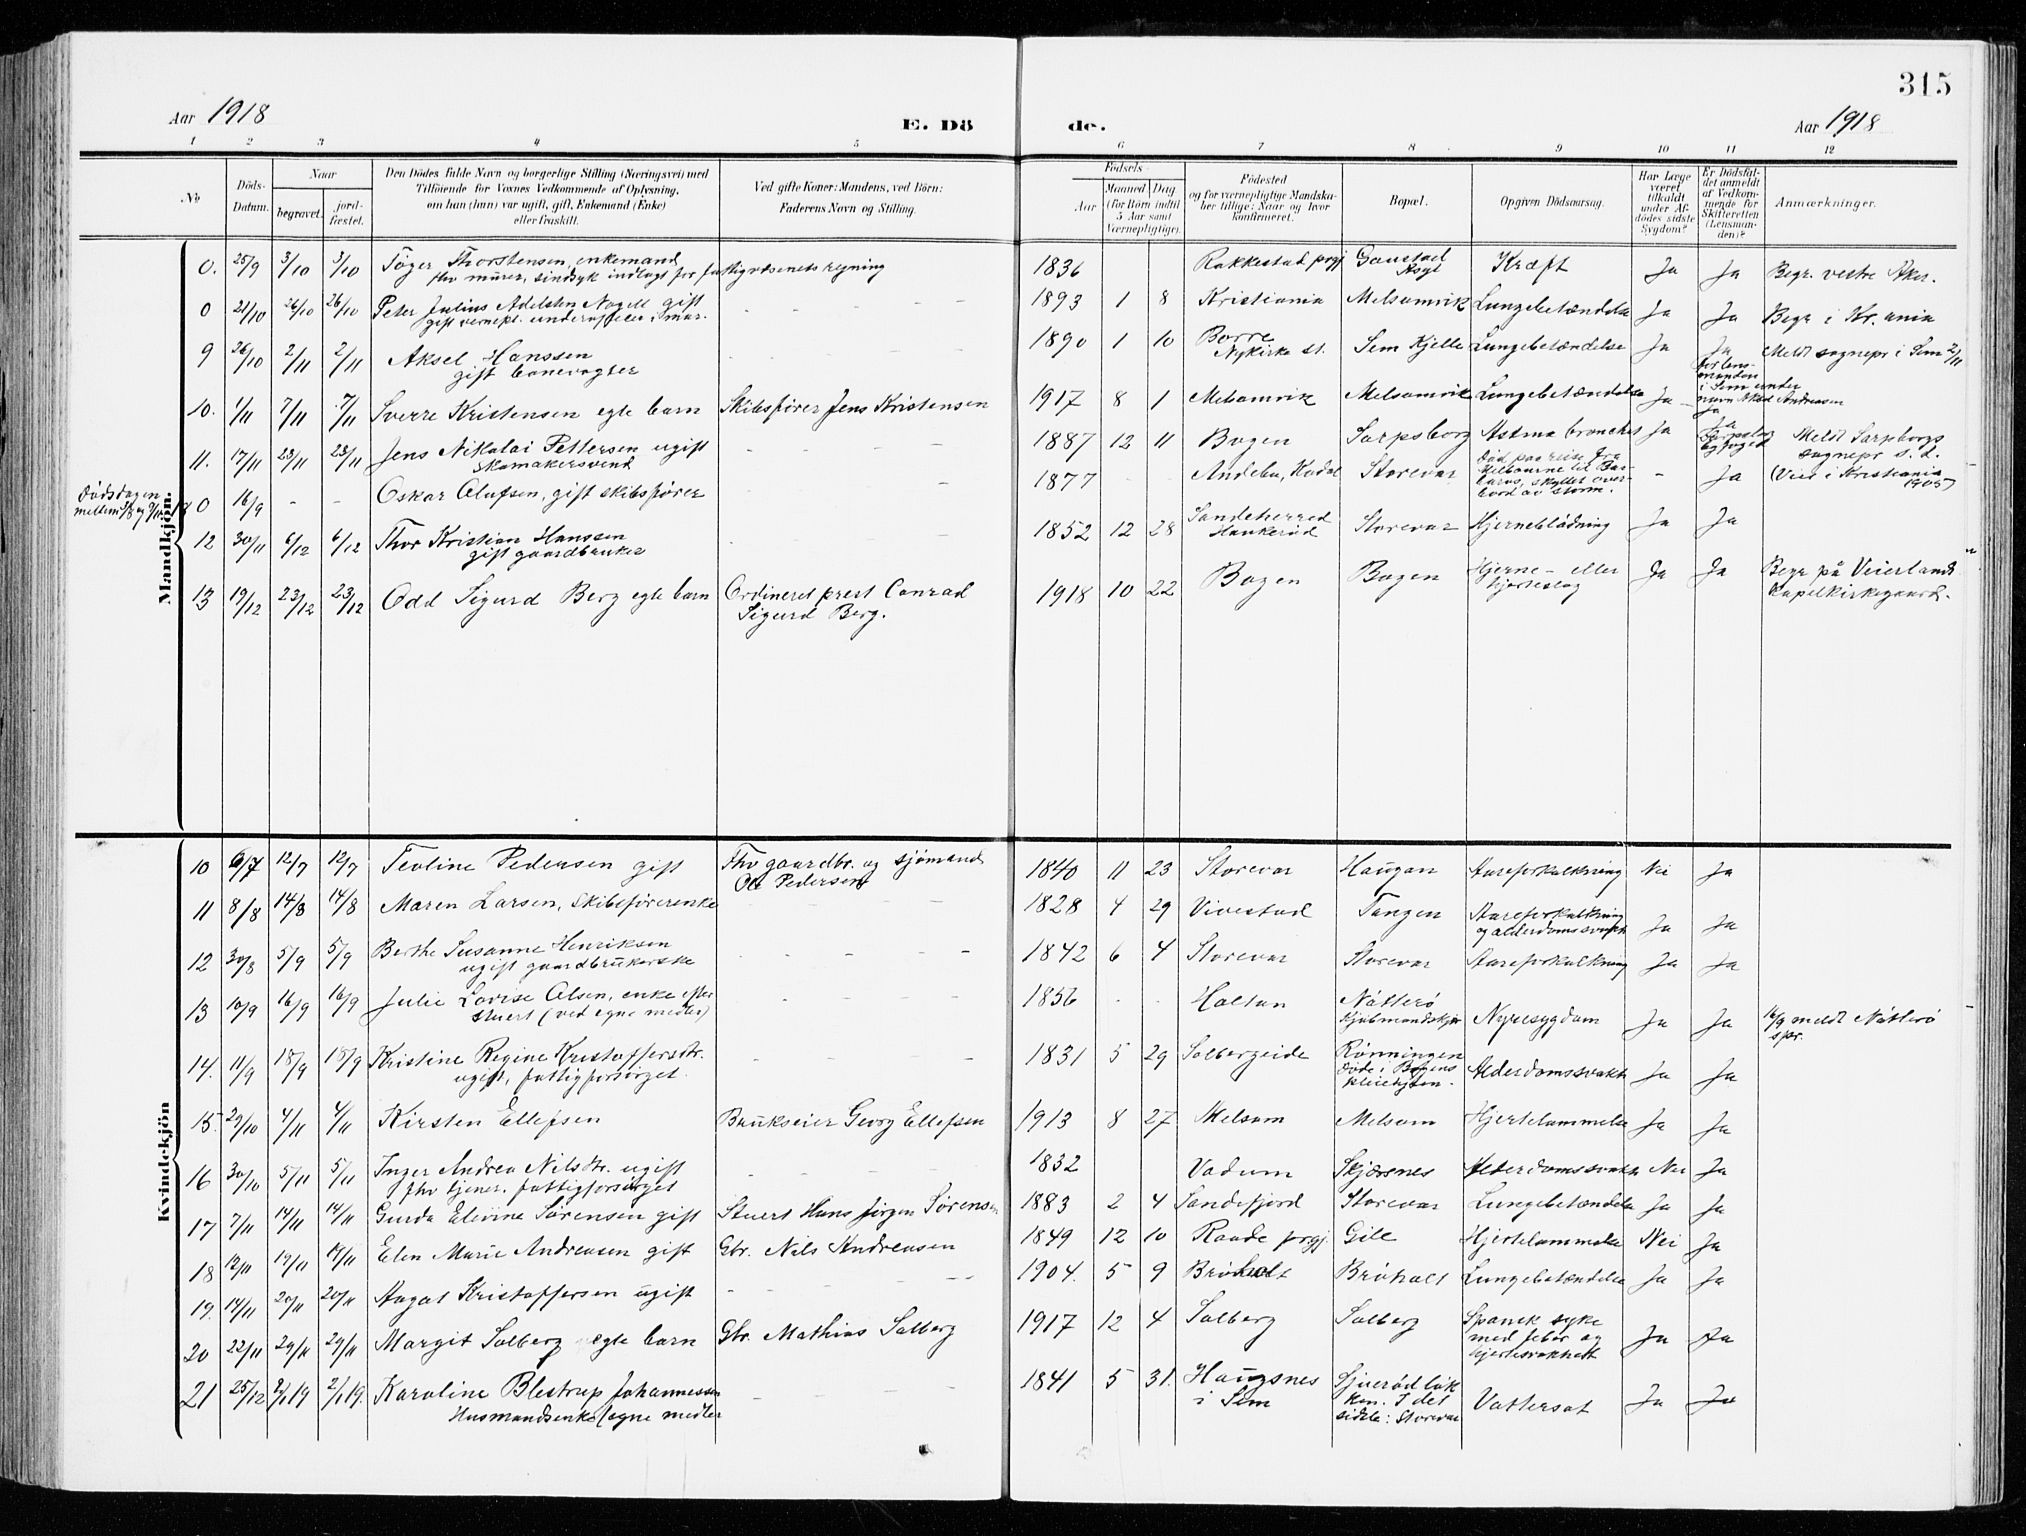 315
Aar 1918
E. Dö de.
Aar 1918
1 2 3 4 5 6 7 8 9 10 11 12
No
Döds-Datum.
Naar
begravet.
jord-fæstet.
Den Dödes fulde Navn og borgerlige Stilling (Næringsvei) med
Tilföiende for Voxnes Vedkommende af Oplysning,
om han (hun) var ugift, gift, Enkemand (Enke)
eller fraskilt.
Ved gifte Koner: Mandens, ved Börn:
Faderens Navn og Stilling.
Födsels-
Aar
Maaned Dag
(for Börn indtil
5 Aar samt
Værnepligtige)
Födested
og for værnepligtige Mandska-
ber tillige: Naar og hvor
konfirmeret.
Bopæl.
Opgiven Dödsaarsag.
Har Læge
været
tilkaldt
under Af-
dödes sidste
Sygdom?
Er Dödsfal-
det anmeldt
af Vedkom-
mende for
Skifteretten
(Lensman-
den)?
Anmærkninger.
Mandkjön.
0. 25/9 3/10 3/10 Töger Thorstensen, enkemand 1836 Rakkestad prgj Gaustad Asyl Kræft Ja Ja Begr. vestre Aker.
fhv murer, sindsyk indlagt for fattigvæsenets regning
0 21/10 26/10 26/10 Peter Julius Adelsten Nagell gift 1893 1 8 Kristiania Melsomvik Lungebetændelse Ja Ja Begr i Kr.ania
gift vernepl. underofficer i mar.
9 26/10 2/11 2/11 Aksel Hanssen 1890 1 10 Borre Nykirke st. Sem Kjelle Lungebetændelse Ja Ja Meldt sognepr i Sem 2/11
gift banevogter
for lens-
manden
i Sem under
navn Aksel Andreasen
10. 1/11 7/11 7/11 Sverre Kristensen egte barn Skibsfører Jens Kristensen 1917 8 1 Melsomvik Melsomvik Lungebetændelse Ja Ja
11. 17/11 23/11 23/11 Jens Nikolai Pettersen ugift 1887 12 11 Bogen Sarpsborg Astma bronchit Ja Ja Sarpsborg byfoged Meldt Sarpborgs
skomakersvend sognepr s. d.
Dødsdagen
0 16/9 - - Oskar Olafsen, gift skibsfører 1877 Andebu, Kodal Storevar Død paa reise fra
Melbourne til Bar-
baros, skyllet over-
bord av storm. - Ja (Viet i Kristiania 1905)
12 30/11 6/12 6/12 Thor Kristian Hanssen 1852 12 28 Sandeherred Haukerød Storevar Hjerneblødning Ja Ja
gift gaardbruker
13 19/12 23/12 23/12 Odd Sigurd Berg egte barn Ordineret prest Conrad Sigurd Berg. 1918 10 22 Bogen Bogen Hjerne- eller hjerteslag Ja Ja Begr på Veierlands
kapelkirkegaard.
Kvindekjön
10 6/7 12/7 12/7 Teoline Pedersen gift Fhv gaardbr. og sjømand Ole Pedersen 1840 11 23 Storevar Haugan Aareforkalkning Nei Ja
11 8/8 14/8 14/8 Maren Larsen, skibsførerenke 1828 4 29 Vivestad Tangen Aareforkalkning Ja Ja
og alderdomssvakh
12 30/8 5/9 5/9 Berthe Susanne Henriksen 1842 6 4 Storevar Storevar Aareforkalkning Ja Ja
ugift gaardbrukerske
13 10/9 16/9 16/9 Julie Lovise Olsen, enke efter 1856 Holtan Nøtterø Nyresygdom Ja Ja 16/9 meldt Nøtterø
stuert (ved egne midler) Kjøbmandskjær spr.
14. 11/9 18/9 18/9 Kristine Regine Kristoffersdtr. 1831 5 29 Solbergeide Rønningen Alderdomssvakh Ja Ja
ugift, fattigforsørget. døde i Bogens
pleiehjem.
15. 29/10 4/11 4/11 Kirsten Ellefsen Brukseier Georg Ellefsen 1913 8 27 Melsom Melsom Hjertelammelse Ja Ja
16 30/10 5/11 5/11 Inger Andrea Nilsdtr. ugift 1832 Vadum Skjærsnes Alderdomssvakh Nei Ja
fhv tjener. fattigforsørget
17 7/11 14/11 14/11 Gurda Elevine Sørensen gift Stuert Hans Jørgen Sørensen 1883 2 4 Sandefjord Storevar Lungebetændelse Ja Ja
18 12/11 19/11 19/11 Elen Marie Andreasen gift Gbr. Nils Andreasen 1849 12 10 Raade prgj. Gile Hjertelammelse Nei Ja
19. 14/11 20/11 20/11 Aagot Kristoffersen ugift 1904. 5 9 Brøholt Brøholt Lungebetændelse Ja Ja
20 22/11 29/11 29/11 Margit Solberg egte barn Gbr. Mathias Solberg 1917 12 4 Solberg Solberg Spansk syke Ja Ja
med feber og
hjertesvakhet
21 25/12 2/1 19 2/1 19. Karoline Blestrup Johannessen 1841 5 31. Haugsnes Vattersot Ja Ja
Husmandsenke (egne midler i Sem kan. I det
sidste: Storevar